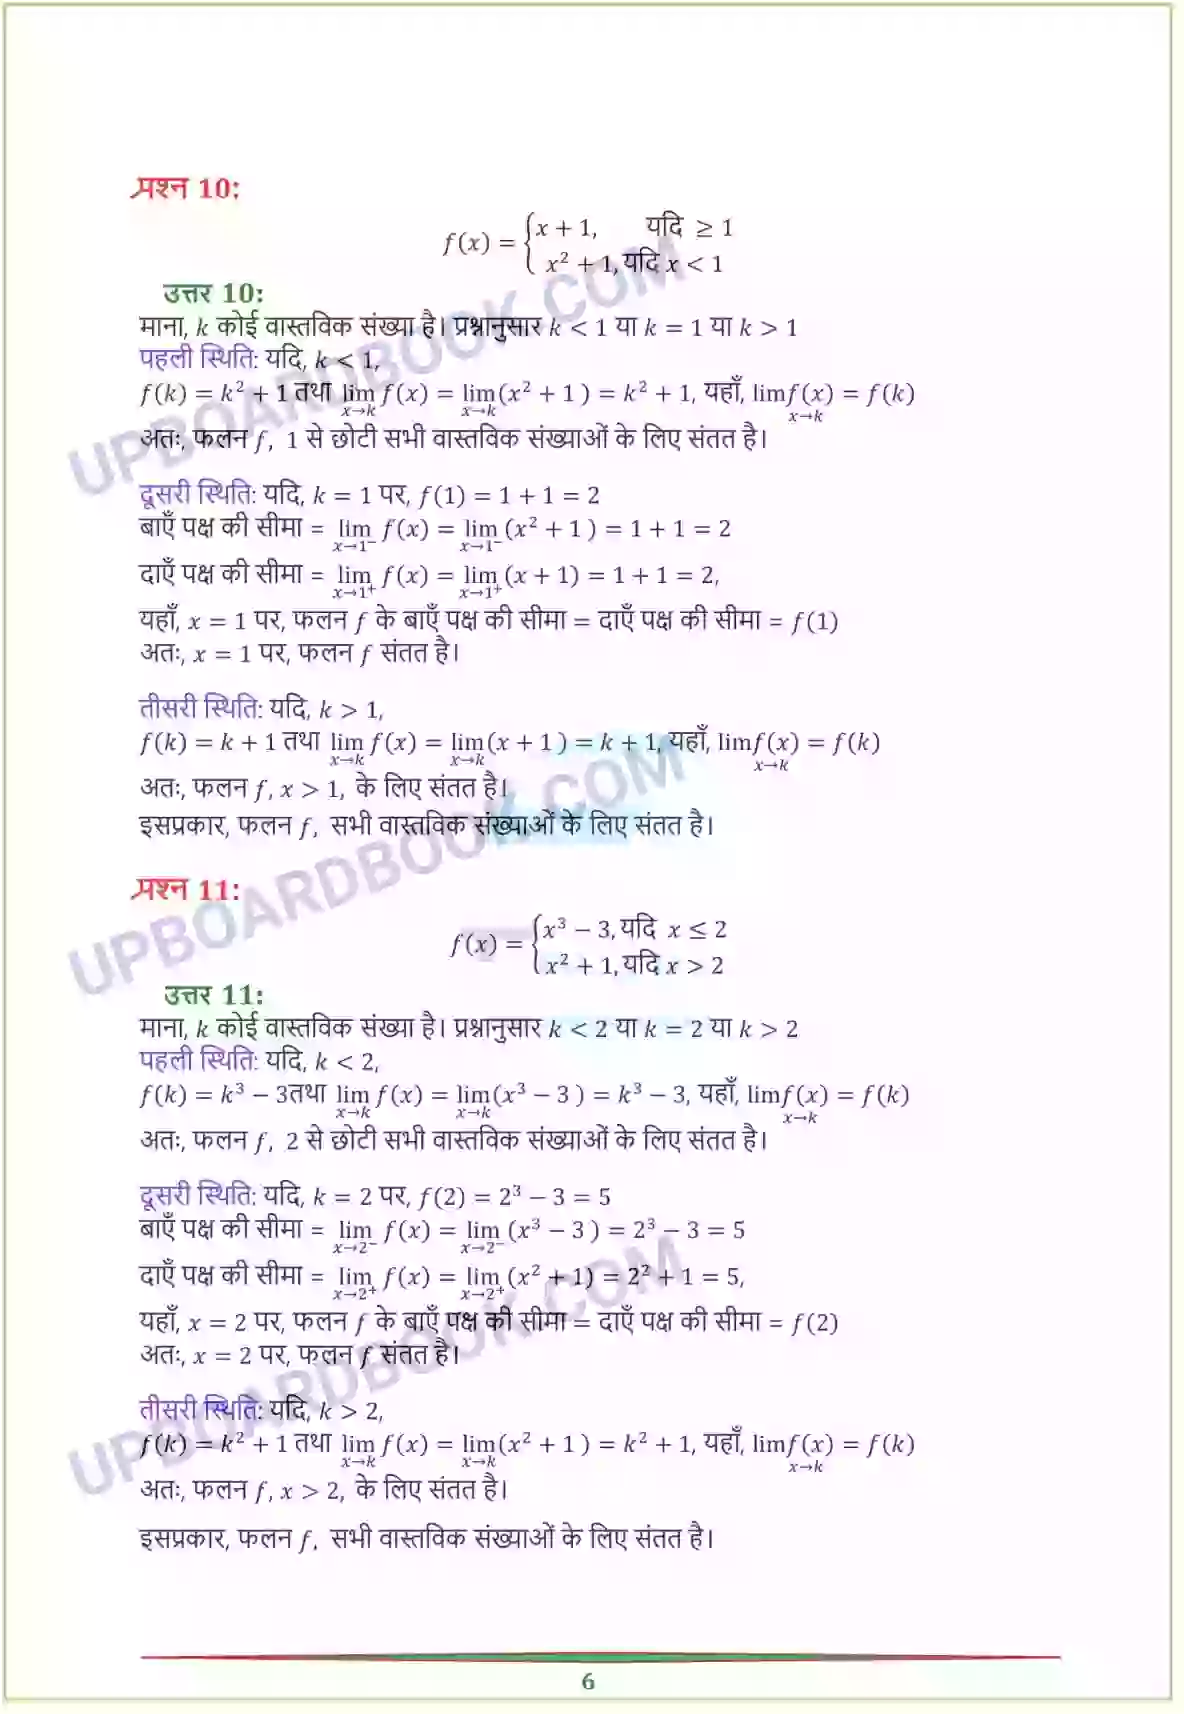 प्रश्न 10:
f(x) = { x + 1, यदि ≥ 1
x² + 1, यदि x < 1
उत्तर 10:
माना, k कोई वास्तविक संख्या है। प्रश्नानुसार k < 1 या k = 1 या k > 1
पहली स्थिति: यदि, k < 1,
f(k) = k² + 1 तथा lim x→k f(x) = lim x→k (x² + 1 ) = k² + 1, यहाँ, lim x→k f(x) = f(k)
अतः, फलन f, 1 से छोटी सभी वास्तविक संख्याओं के लिए संतत है।
दूसरी स्थिति: यदि, k = 1 पर, f(1) = 1 + 1 = 2
बाएँ पक्ष की सीमा = lim x→1⁻ f(x) = lim x→1⁻ (x² + 1 ) = 1 + 1 = 2
दाएँ पक्ष की सीमा = lim x→1⁺ f(x) = lim x→1⁺ (x + 1) = 1 + 1 = 2,
यहाँ, x = 1 पर, फलन f के बाएँ पक्ष की सीमा = दाएँ पक्ष की सीमा = f(1)
अतः, x = 1 पर, फलन f संतत है।
तीसरी स्थिति: यदि, k > 1,
f(k) = k + 1 तथा lim x→k f(x) = lim x→k (x + 1 ) = k + 1, यहाँ, lim x→k f(x) = f(k)
अतः, फलन f, x > 1, के लिए संतत है।
इसप्रकार, फलन f, सभी वास्तविक संख्याओं के लिए संतत है।
प्रश्न 11:
f(x) = { x³ − 3, यदि x ≤ 2
x² + 1, यदि x > 2
उत्तर 11:
माना, k कोई वास्तविक संख्या है। प्रश्नानुसार k < 2 या k = 2 या k > 2
पहली स्थिति: यदि, k < 2,
f(k) = k³ − 3तथा lim x→k f(x) = lim x→k (x³ − 3 ) = k³ − 3, यहाँ, lim x→k f(x) = f(k)
अतः, फलन f, 2 से छोटी सभी वास्तविक संख्याओं के लिए संतत है।
दूसरी स्थिति: यदि, k = 2 पर, f(2) = 2³ − 3 = 5
बाएँ पक्ष की सीमा = lim x→2⁻ f(x) = lim x→2⁻ (x³ − 3 ) = 2³ − 3 = 5
दाएँ पक्ष की सीमा = lim x→2⁺ f(x) = lim x→2⁺ (x² + 1) = 2² + 1 = 5,
यहाँ, x = 2 पर, फलन f के बाएँ पक्ष की सीमा = दाएँ पक्ष की सीमा = f(2)
अतः, x = 2 पर, फलन f संतत है।
तीसरी स्थिति: यदि, k > 2,
f(k) = k² + 1 तथा lim x→k f(x) = lim x→k (x² + 1 ) = k² + 1, यहाँ, lim x→k f(x) = f(k)
अतः, फलन f, x > 2, के लिए संतत है।
इसप्रकार, फलन f, सभी वास्तविक संख्याओं के लिए संतत है।
6
UPBOARDBOOK.COM
UPBOARDBOOK.COM
UPBOARDBOOK.COM